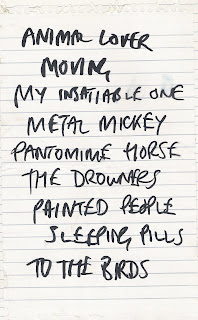 ANIMAL LOVER
MOVING
MY INSATIABLE ONE
METAL MICKEY
PANTOMIME HORSE
THE DROWNERS
PAINTED PEOPLE
SLEEPING PILLS
TO THE BIRDS